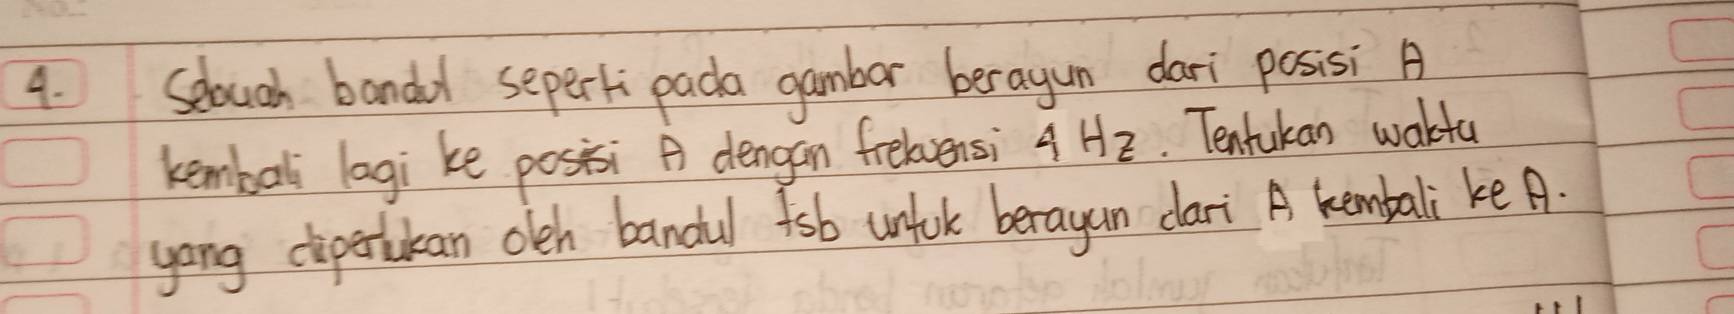 4. Sebuah bandul seperti pada gambar berayun dari posisi A
kembali lagi ke posisi A dengan frekuensi 4 Hz. Tentukan waktu
yang diperlukan oleh bandul tsb untuk berayun dari A kembali ke A.